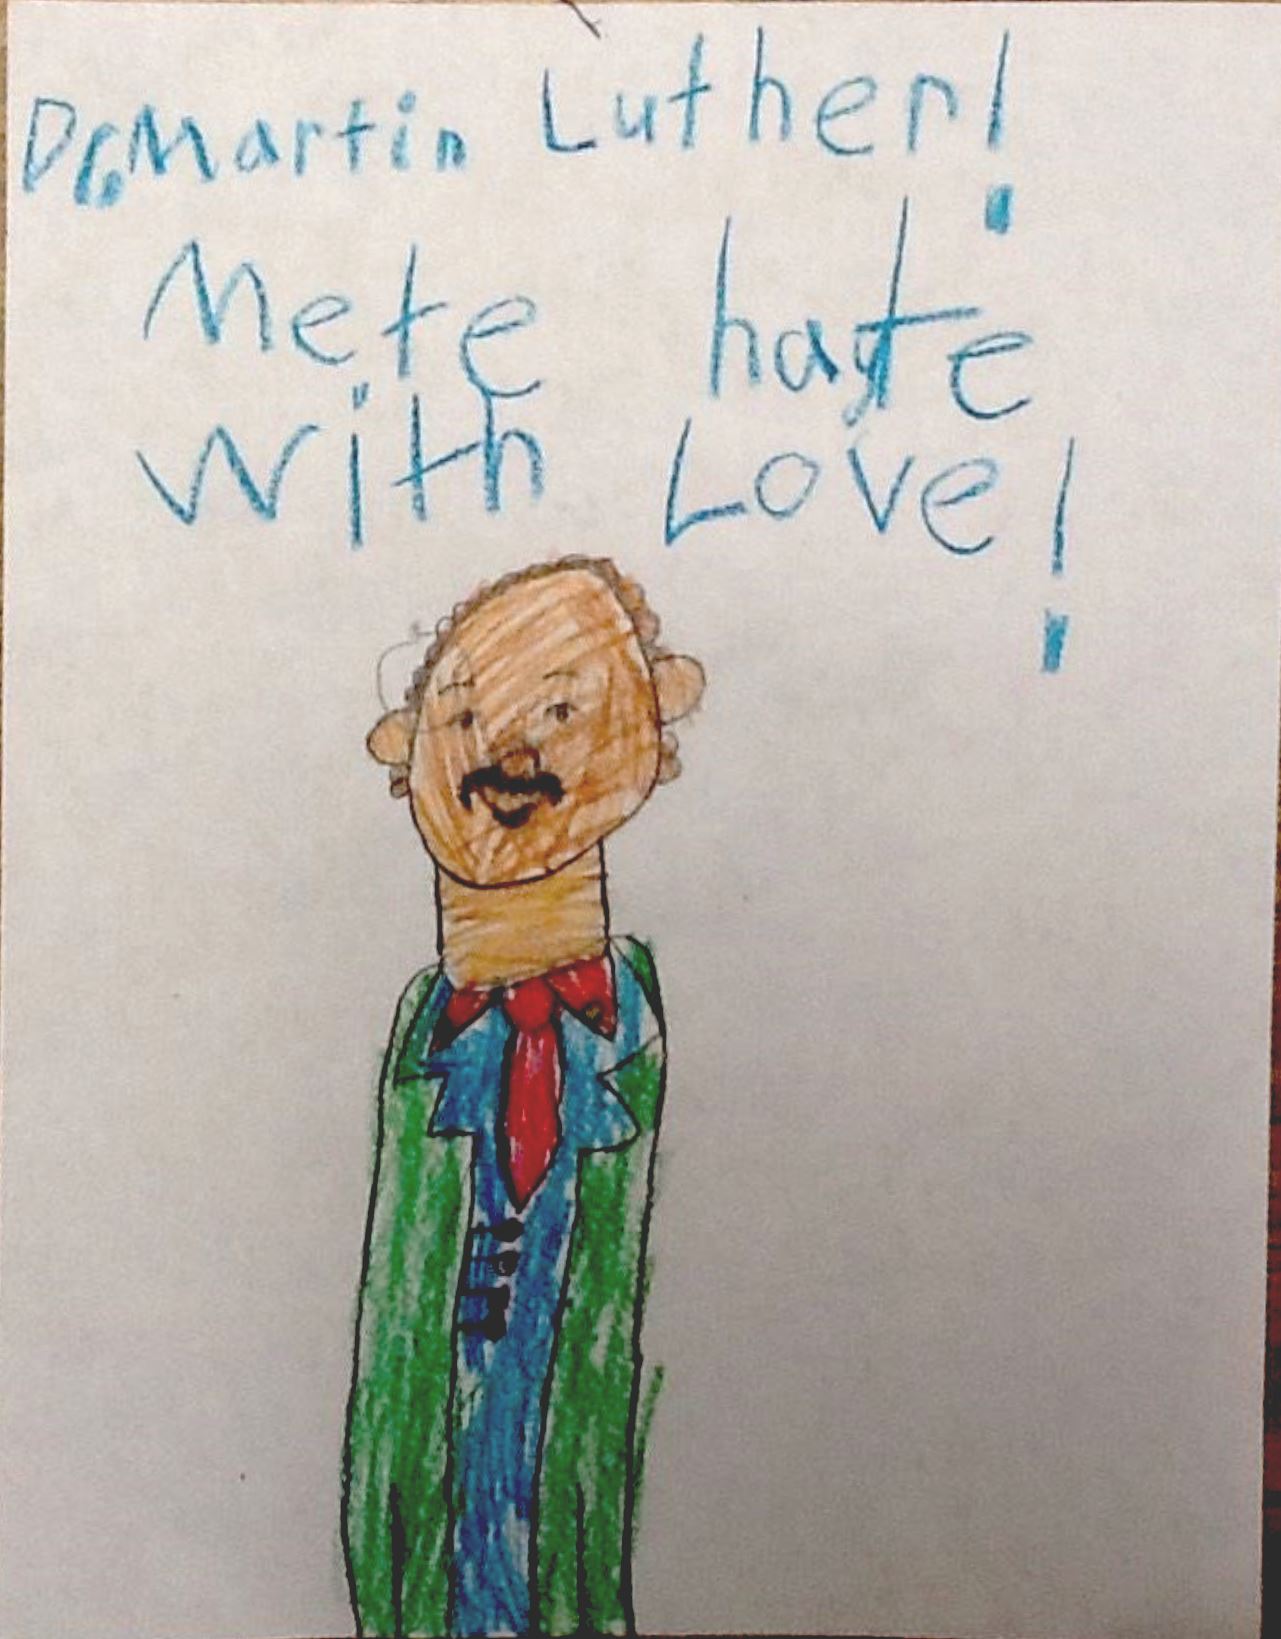 Dr. Martin Luther!
Mete hate
With Love!